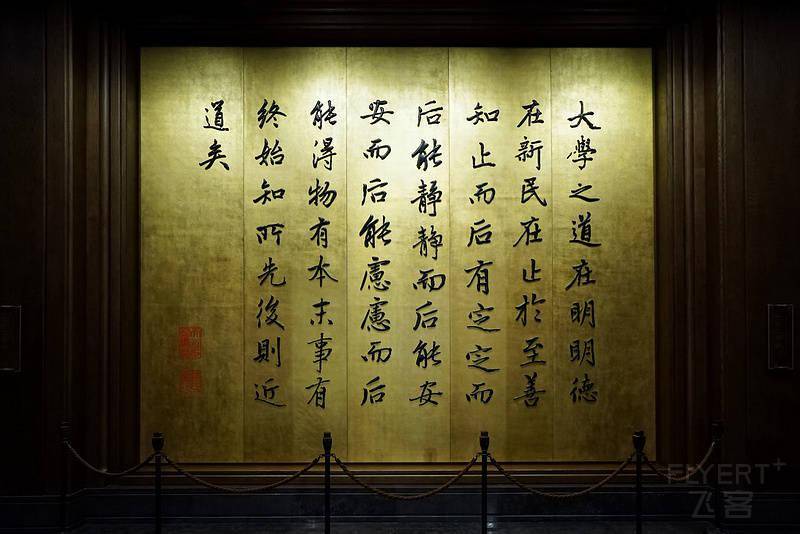 大學之道在明明德
在新民在止於至善
知止而后有定定而
后能静静而后能安
安而后能慮慮而后
能得物有本末事有
終始知所先後則近
道矣
FLYERT+
飞客